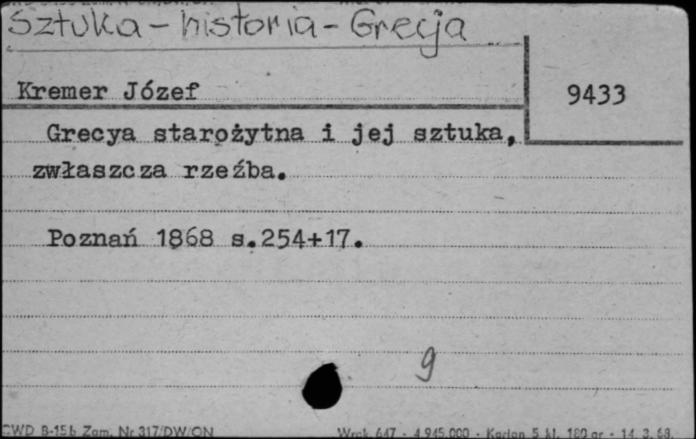 Sztuka - historia - Grecja
Kremer Józef
9433
Grecya starożytna i jej sztuka,
zwłaszcza rzeźba.
Poznań 1868 s.254+17.
9
CWD B-15b Zam. Nr 317/DW/ON Wrok 647 - 4.945.000 - Karton 5 kl. 180 gr - 14.3.68